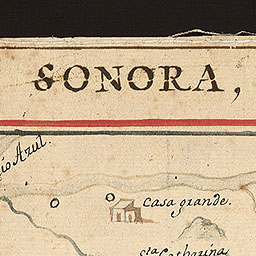 SONORA,
ío Azul.
Casa grande.
sta Catharina